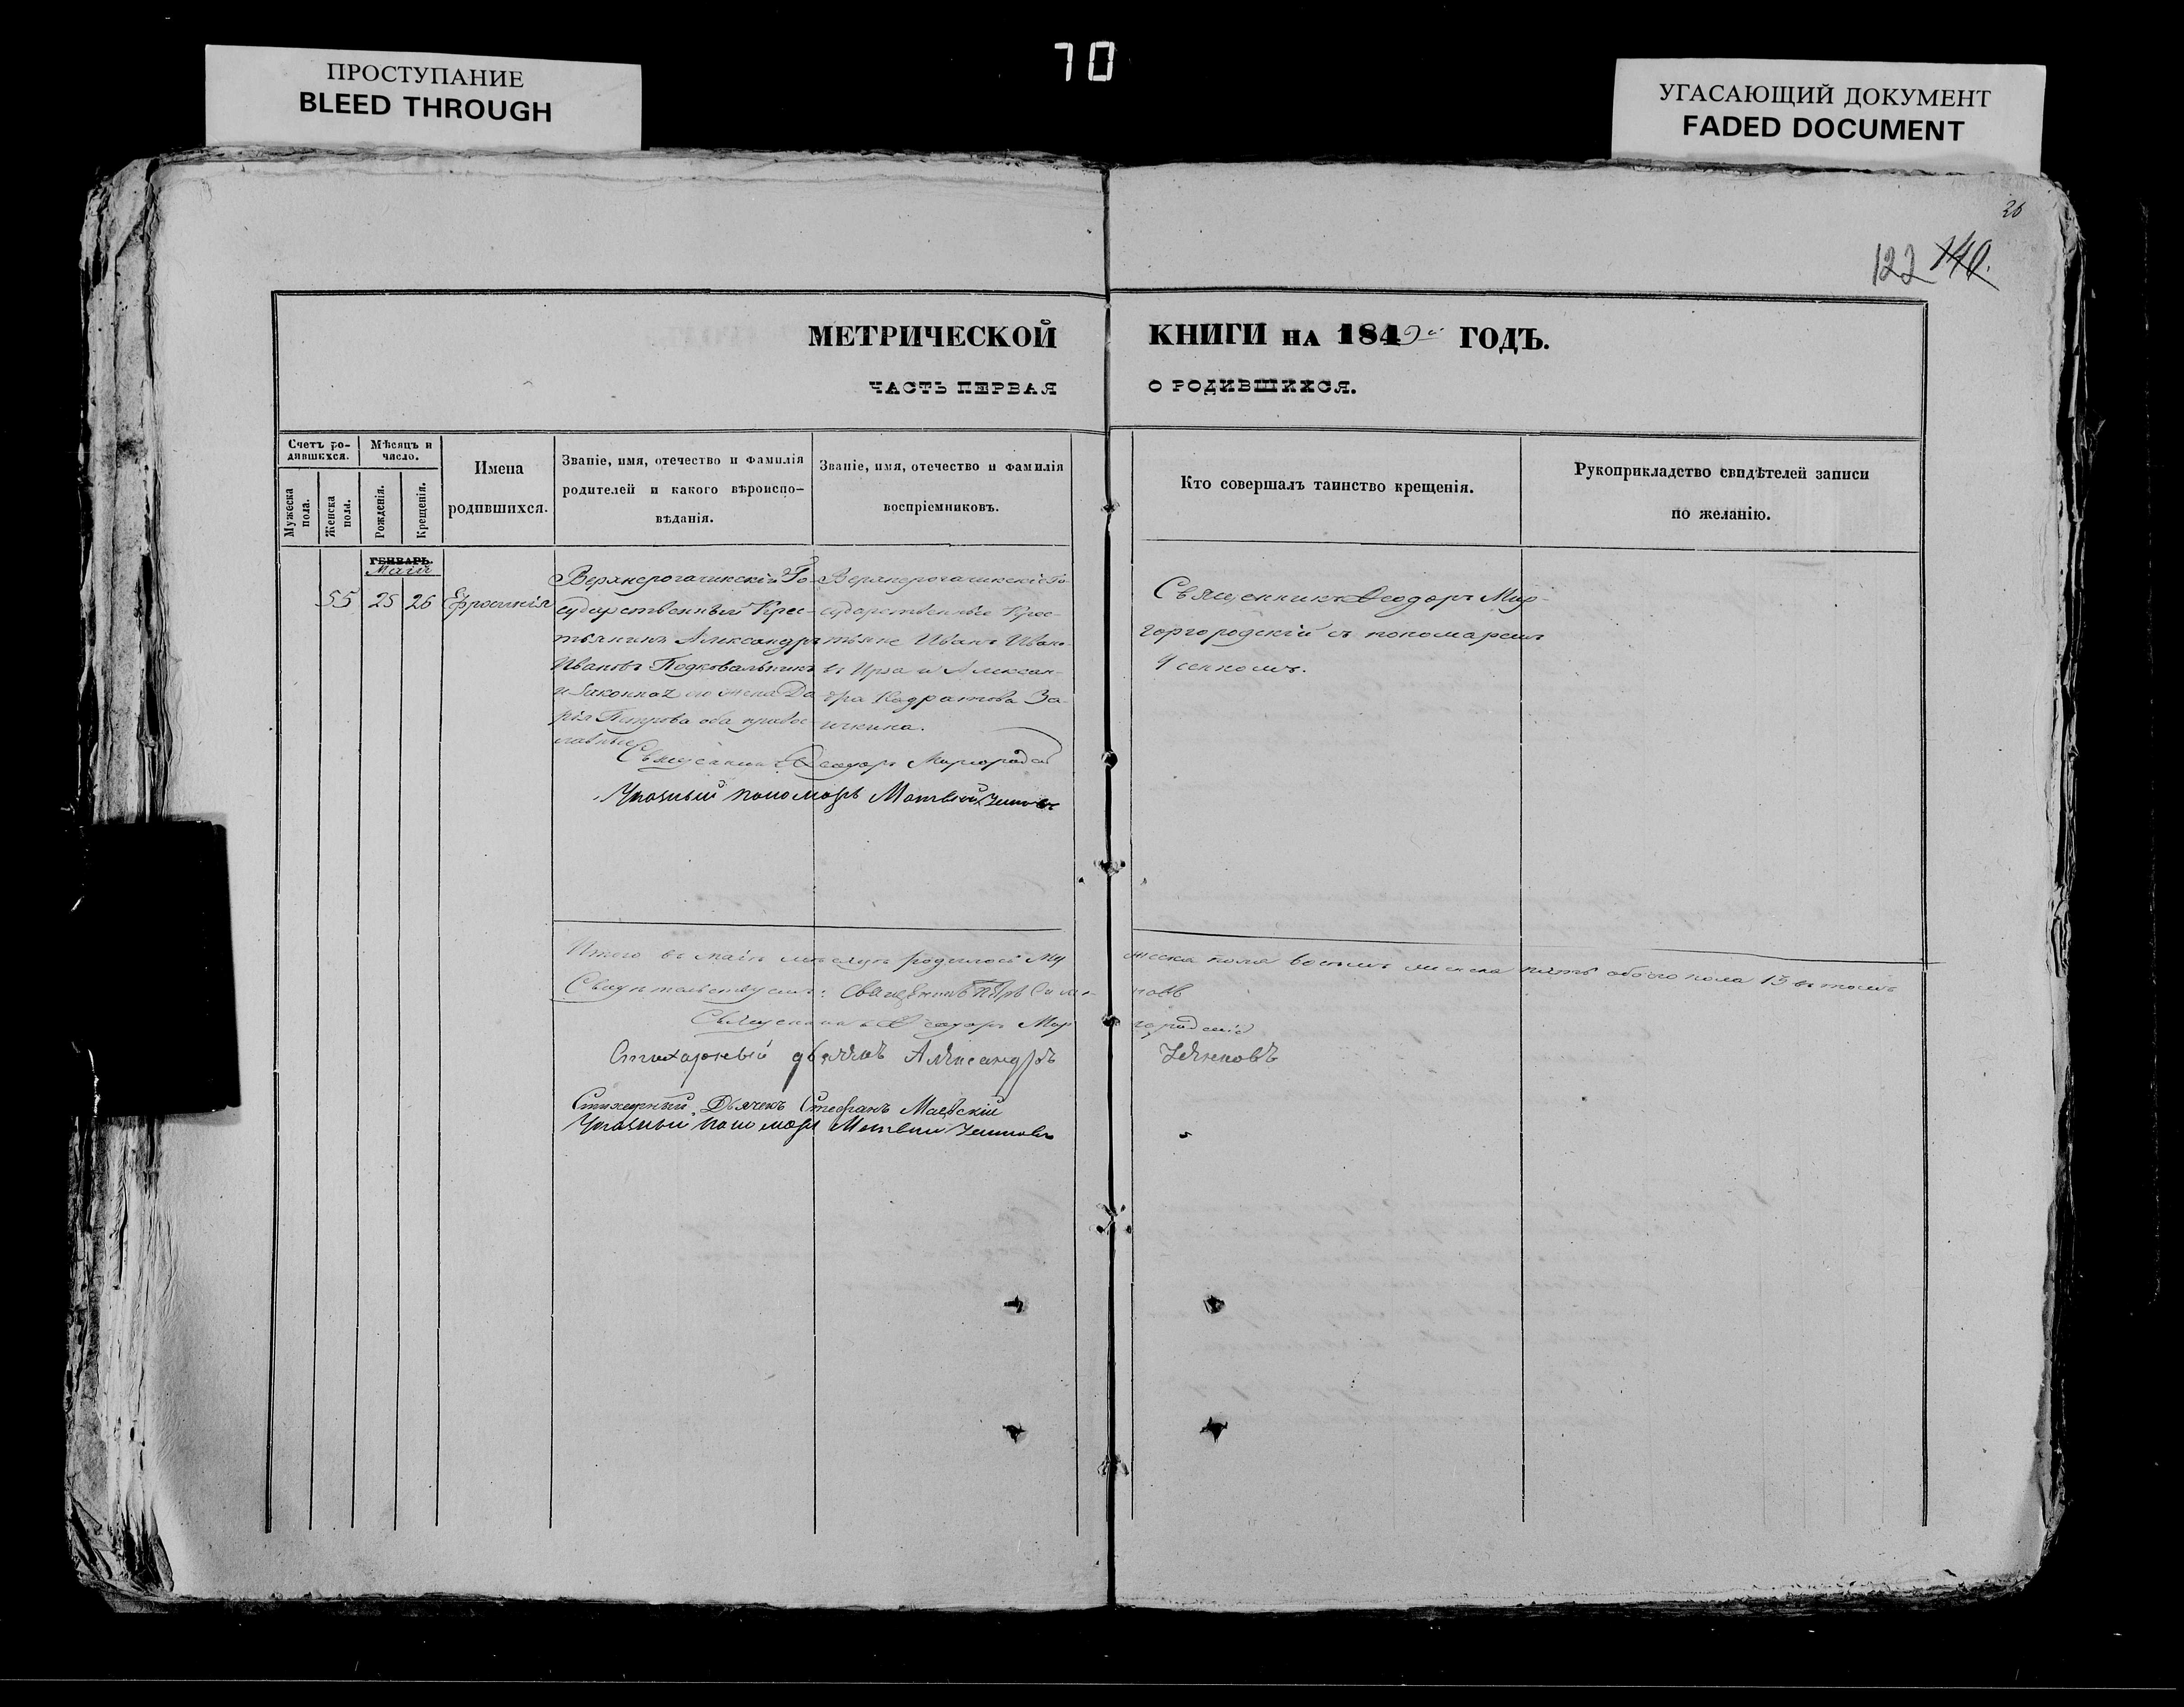 ПРОСТУПАНИЕ
BLEED THROUGH
70
УГАСАЮЩИЙ ДОКУМЕНТ
FADED DOCUMENT
26
122 140.
МЕТРИЧЕСКОЙ КНИГИ НА 1849й ГОДЪ.
ЧАСТЬ ПЕРВАЯ О РОДИВШИХСЯ.
Счетъ ро-
дившихся.
Мужеска
пола.
Женска
пола.
Мѣсяцъ и
число.
Рожденія.
Крещенія.
Имена
родившихся.
Званіе, имя, отечество и фамилія
родителей и какого вѣроиспо-
вѣданія.
Званіе, имя, отечество и фамилія
воспріемниковъ.
Кто совершалъ таинство крещенія.
Рукоприкладство свидѣтелей записи
по желанію.
ГЕНВАРЬ.
Маій
55 25 26 Ефросинія
Верхнерогачикскій Го-
сударственный Крес-
тьянинъ Александръ
Ивановъ Подковальникъ
и законная его жена Да
рія Петрова оба правос
лавные
Верхнерогачикскіе Го-
сударственные Крес-
тьяне Иванъ Ивано-
въ и Алексан-
дра Кадратова За-
ичкина.
Священникъ Ѳеодоръ Мир-
горгородскій съ пономаремъ
Священникъ Ѳеодоръ Миргородскій
Указный пономарь Матвей
Итого въ маіи месяце родилось му жеска пола восемь женска пять обоего пола 13
Свидетельствуемъ: Священникъ
Священникъ Ѳеодоръ Мир городскій
Стихарный дьячекъ Александръ
Стихарный Дьячекъ Стефанъ Маевскій
Указный пономарь Матвей